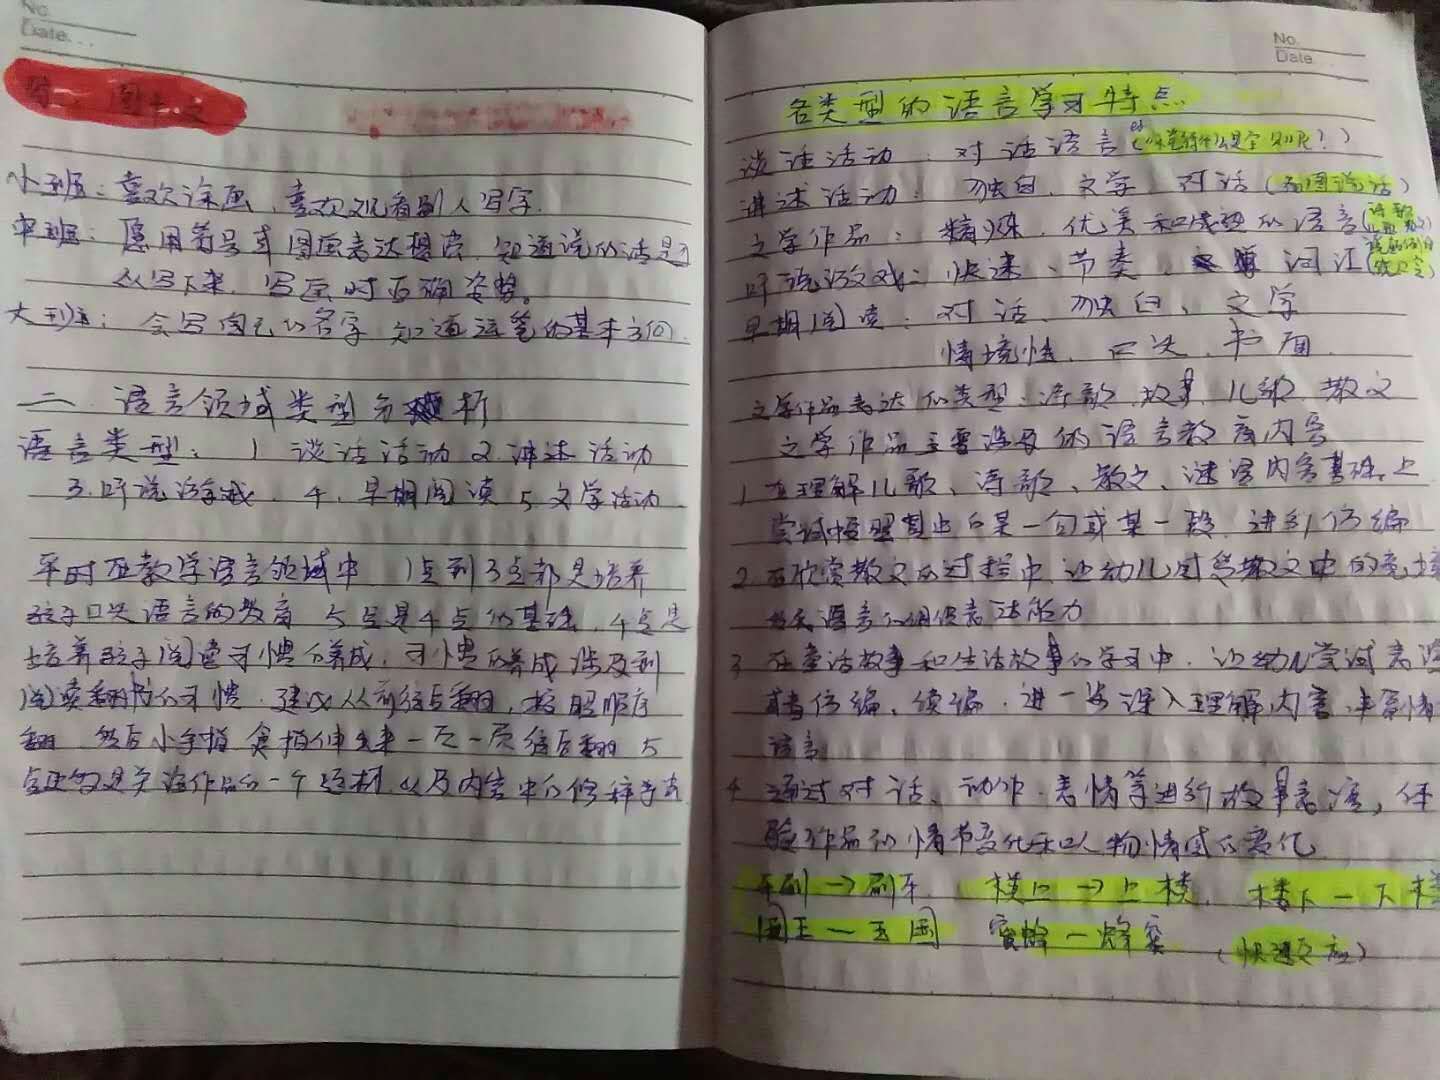 No.
Date.
小班：喜欢涂画、喜欢观看别人写字.
中班：愿用符号或图画表达想法、知道说的话是可
以写下来，写画时正确姿势。
大班：会写自己的名字 知道运笔的基本方向.
二 语言领域类型分析
语言类型：1 谈话活动 2.讲述活动
3.听说游戏. 4、早期阅读 5 文学活动
平时在教学语言领域中 1点到3点都是培养
孩子口头语言的教育 5点是4点的基础. 4点是
培养孩子阅读习惯的养成，习惯的养成涉及到
阅读翻书的习惯. 建议从前往后翻，按照顺序
翻 然后小手指 食指伸出来一页一页往后翻 5
作品的一个题材 以及内容中的修辞手法
No.
Date
各类型的语言学习特点
谈话活动：对话语言
讲述活动：独白、文学、对话（看图说话）
文学作品：精炼、优美和成熟的语言（诗歌
听说游戏：快速、节奏、词汇
早期阅读：对话、独白、文学
情境性、口头、书面.
文学作品表达的类型：诗歌、故事、儿歌、散文
文学作品主要涉及的语言教育内容
1 在理解儿歌、诗歌、散文、谜语内容基础上
尝试按照其中的某一句或某一段、进行仿编
2 在欣赏散文的过程中，让幼儿对散文中的意境
语言的组织表达能力
3 在童话故事和生活故事的学习中，让幼儿尝试表演
或者仿编、续编，进一步深入理解内容、丰富情
语言
4 通过对话、动作、表情等进行故事表演，体
验作品的情节变化和人物情感的变化
牙刷→刷牙 楼上→上楼. 楼下—下楼
国王—王国 蜜蜂—蜂蜜 （快速反应）